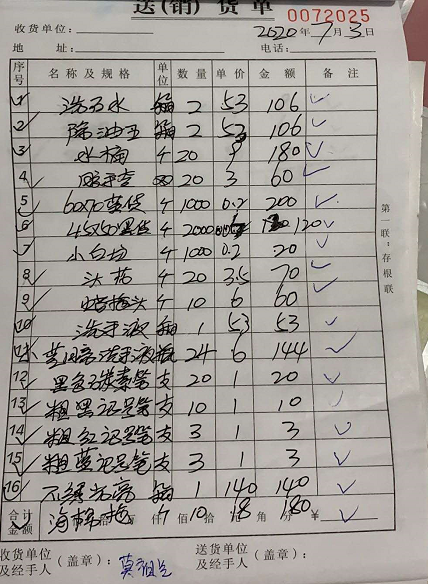 送(销)货单
0072025
收货单位: 2020年7月3日
地 址: 电话:
序号 名称及规格 单位 数量 单价 金额 备注
1 洗石水 箱 2 53 106
2 除油王 箱 2 53 106
3 水桶 个 20 9 180
4 20 3 60
5 60X70 个 1000 0.2 200
6 个 2000 120
7 小白 个 1000 0.2 20
8 头 个 20 3.5 70
9 头 个 10 6 60
10 洗手液 箱 1 53 53
11 洗手液 瓶 24 6 144
12 黑色碳素笔 支 20 1 20
13 粗黑记号笔 支 10 1 10
14 粗红记号笔 支 3 1 3
15 粗蓝记号笔 支 3 1 3
16 不锈光亮 箱 1 140 140
合计金额 海棉拖 个 10 18 180
收货单位及经手人(盖章): 送货单位及经手人(盖章):
第一联:存根联